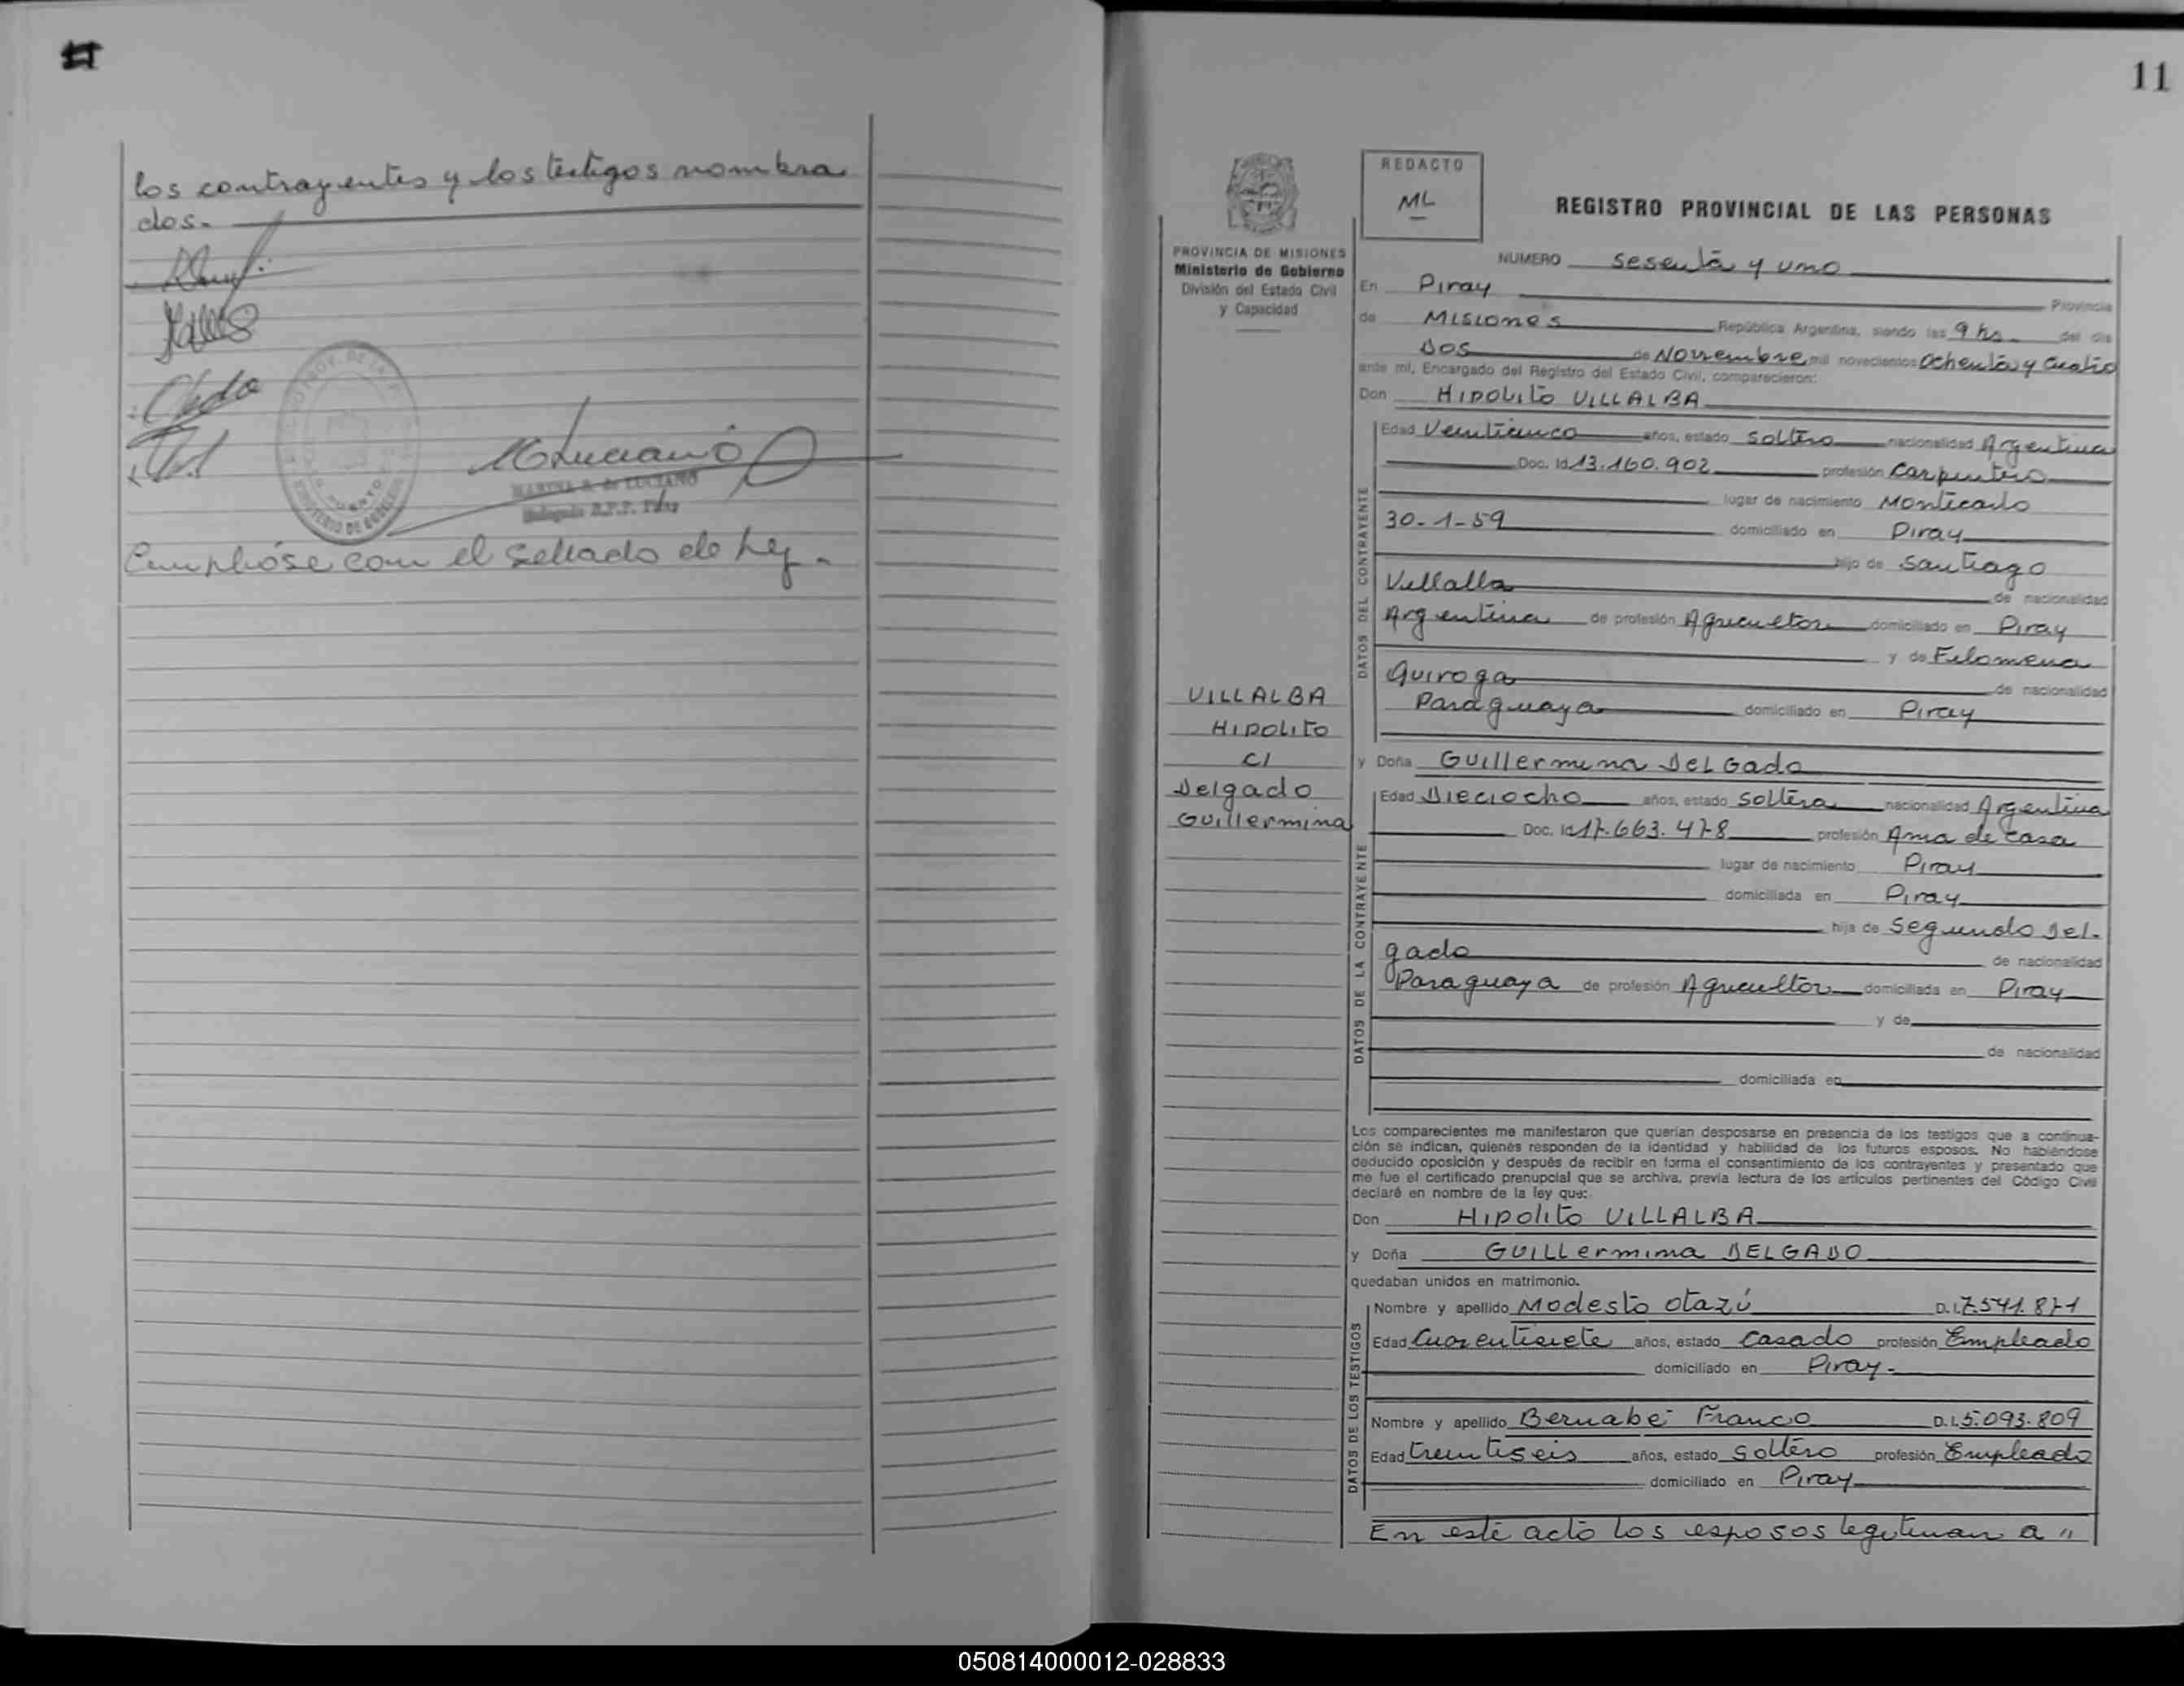 los contrayentes y los testigos nombra
dos.-
MARTHA S. de LUCIANO
Delegada R.P.P. Piray
Cumplióse con el sellado de Ley.-
11
REDACTO
ML
REGISTRO PROVINCIAL DE LAS PERSONAS
PROVINCIA DE MISIONES
Ministerio de Gobierno
División del Estado Civil
y Capacidad
VILLALBA
HIPOLITO
C/
Delgado
Guillermina
NUMERO sesenta y uno
En Piray Provincia
de Misiones República Argentina, siendo las 9 hs. del día
Dos de Noviembre mil novecientos Ochenta y cuatro
ante mí, Encargado del Registro del Estado Civil, comparecieron:
Don HIPOLITO VILLALBA
DATOS DEL CONTRAYENTE
Edad Veinticinco años, estado soltero nacionalidad Argentina
Doc. Id 13.160.902 profesión Carpintero
lugar de nacimiento Montecarlo
30-1-59 domiciliado en Piray
hijo de Santiago
Villalba de nacionalidad
Argentina de profesión Agricultor domiciliado en Piray
y de Filomena
Quiroga de nacionalidad
Paraguaya domiciliado en Piray
y Doña Guillermina Delgado
DATOS DE LA CONTRAYENTE
Edad Dieciocho años, estado soltera nacionalidad Argentina
Doc. Id 17.663.478 profesión Ama de casa
lugar de nacimiento Piray
domiciliada en Piray
hija de Segundo Del-
gado de nacionalidad
Paraguaya de profesión Agricultor domiciliada en Piray
y de
de nacionalidad
domiciliada en
Los comparecientes me manifestaron que querían desposarse en presencia de los testigos que a continua-
ción se indican, quienes responden de la identidad y habilidad de los futuros esposos. No habiéndose
deducido oposición y después de recibir en forma el consentimiento de los contrayentes y presentado que
me fue el certificado prenupcial que se archiva, previa lectura de los artículos pertinentes del Código Civil
declaré en nombre de la ley que:
Don HIPOLITO VILLALBA
y Doña GUILLermina DELGADO
quedaban unidos en matrimonio.
DATOS DE LOS TESTIGOS
Nombre y apellido Modesto Otazú D.I. 7.541.871
Edad Cuarentisiete años, estado Casado profesión Empleado
domiciliado en Piray-
Nombre y apellido Bernabé Franco D.I. 5.093.809
Edad treintiseis años, estado soltero profesión Empleado
domiciliado en Piray
En este acto los esposos legitiman a "
050814000012-028833